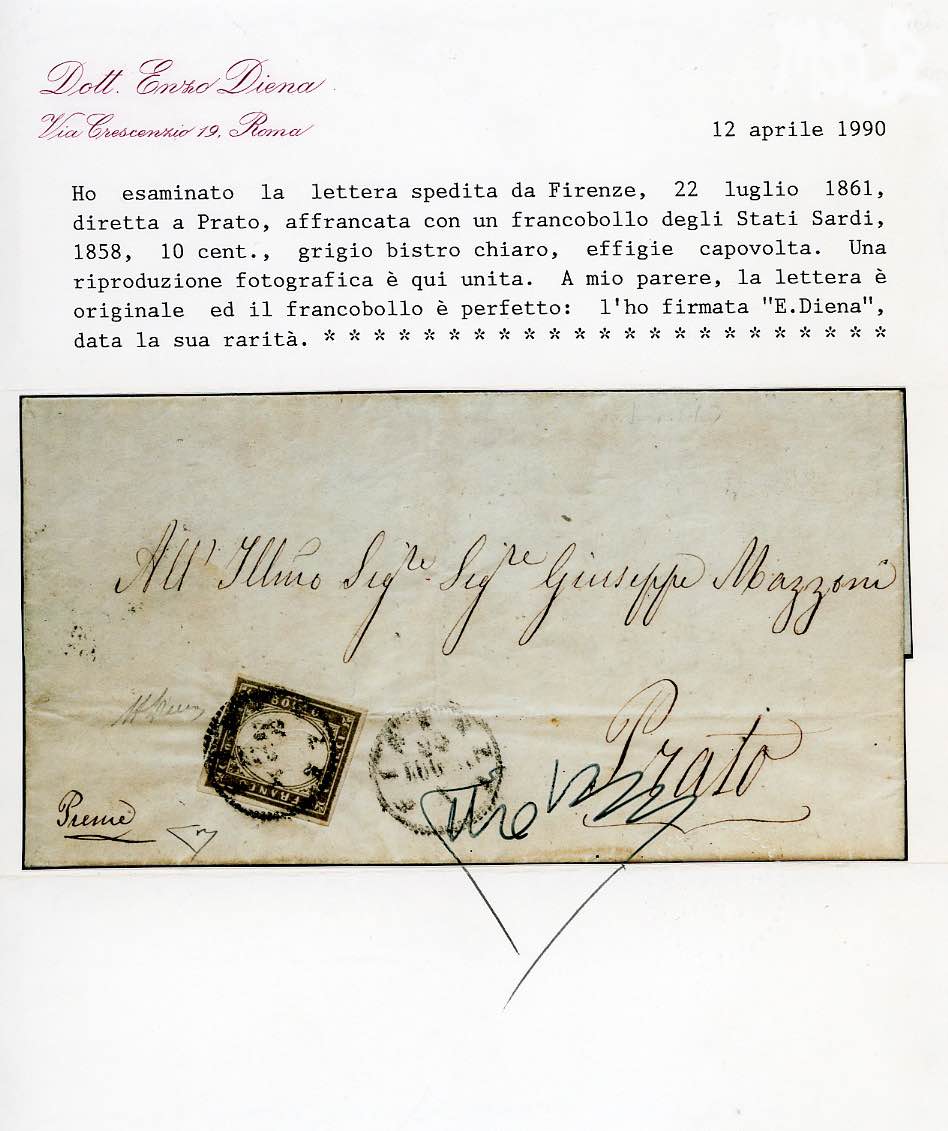 Dott. Enzo Diena
Via Crescenzio 19, Roma
12 aprile 1990
Ho esaminato la lettera spedita da Firenze, 22 luglio 1861,
diretta a Prato, affrancata con un francobollo degli Stati Sardi,
1858, 10 cent., grigio bistro chiaro, effigie capovolta. Una
riproduzione fotografica è qui unita. A mio parere, la lettera è
originale ed il francobollo è perfetto: l'ho firmata "E.Diena",
data la sua rarità. * * * * * * * * * * * * * * * * * * * * * * *
All' Illmo Sigre Sigre Giuseppe Mazzoni
Prato
Preme
FRANCO